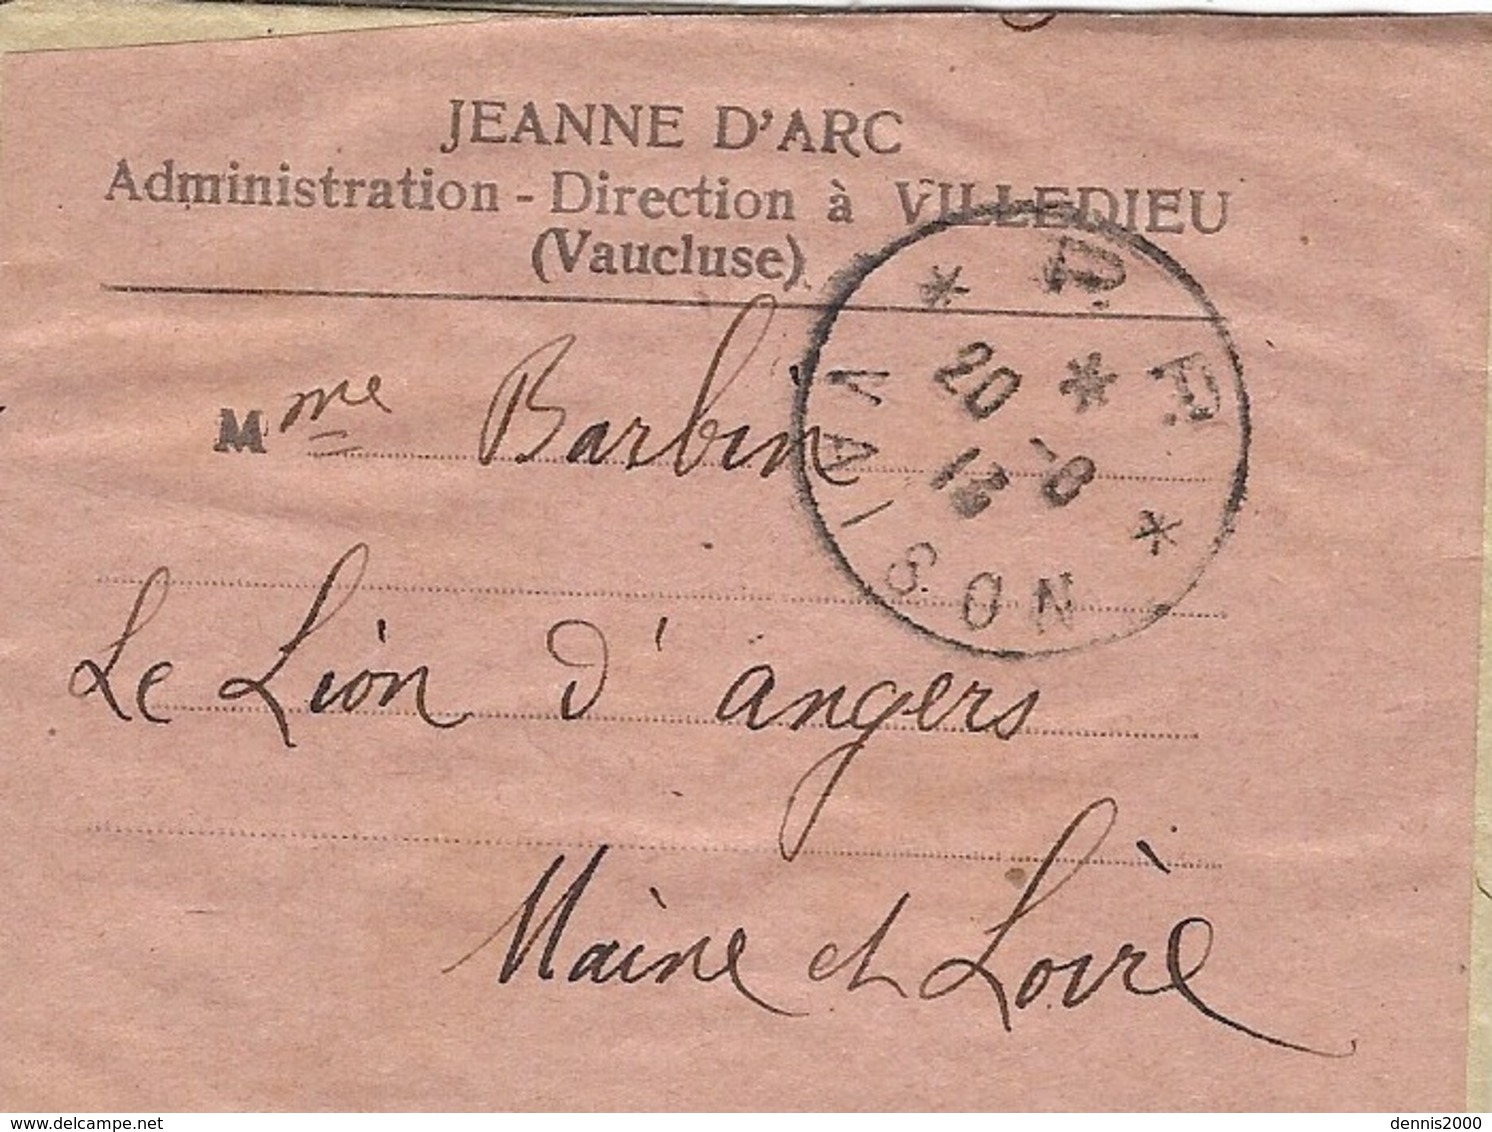 JEANNE D'ARC
Administration - Direction à VILLEDIEU
(Vaucluse)
Mme Barbin
Le Lion d'angers
Maine et Loire
* P. P. *
20 *
-8
12
VAISON
delcampe.net
dennis2000